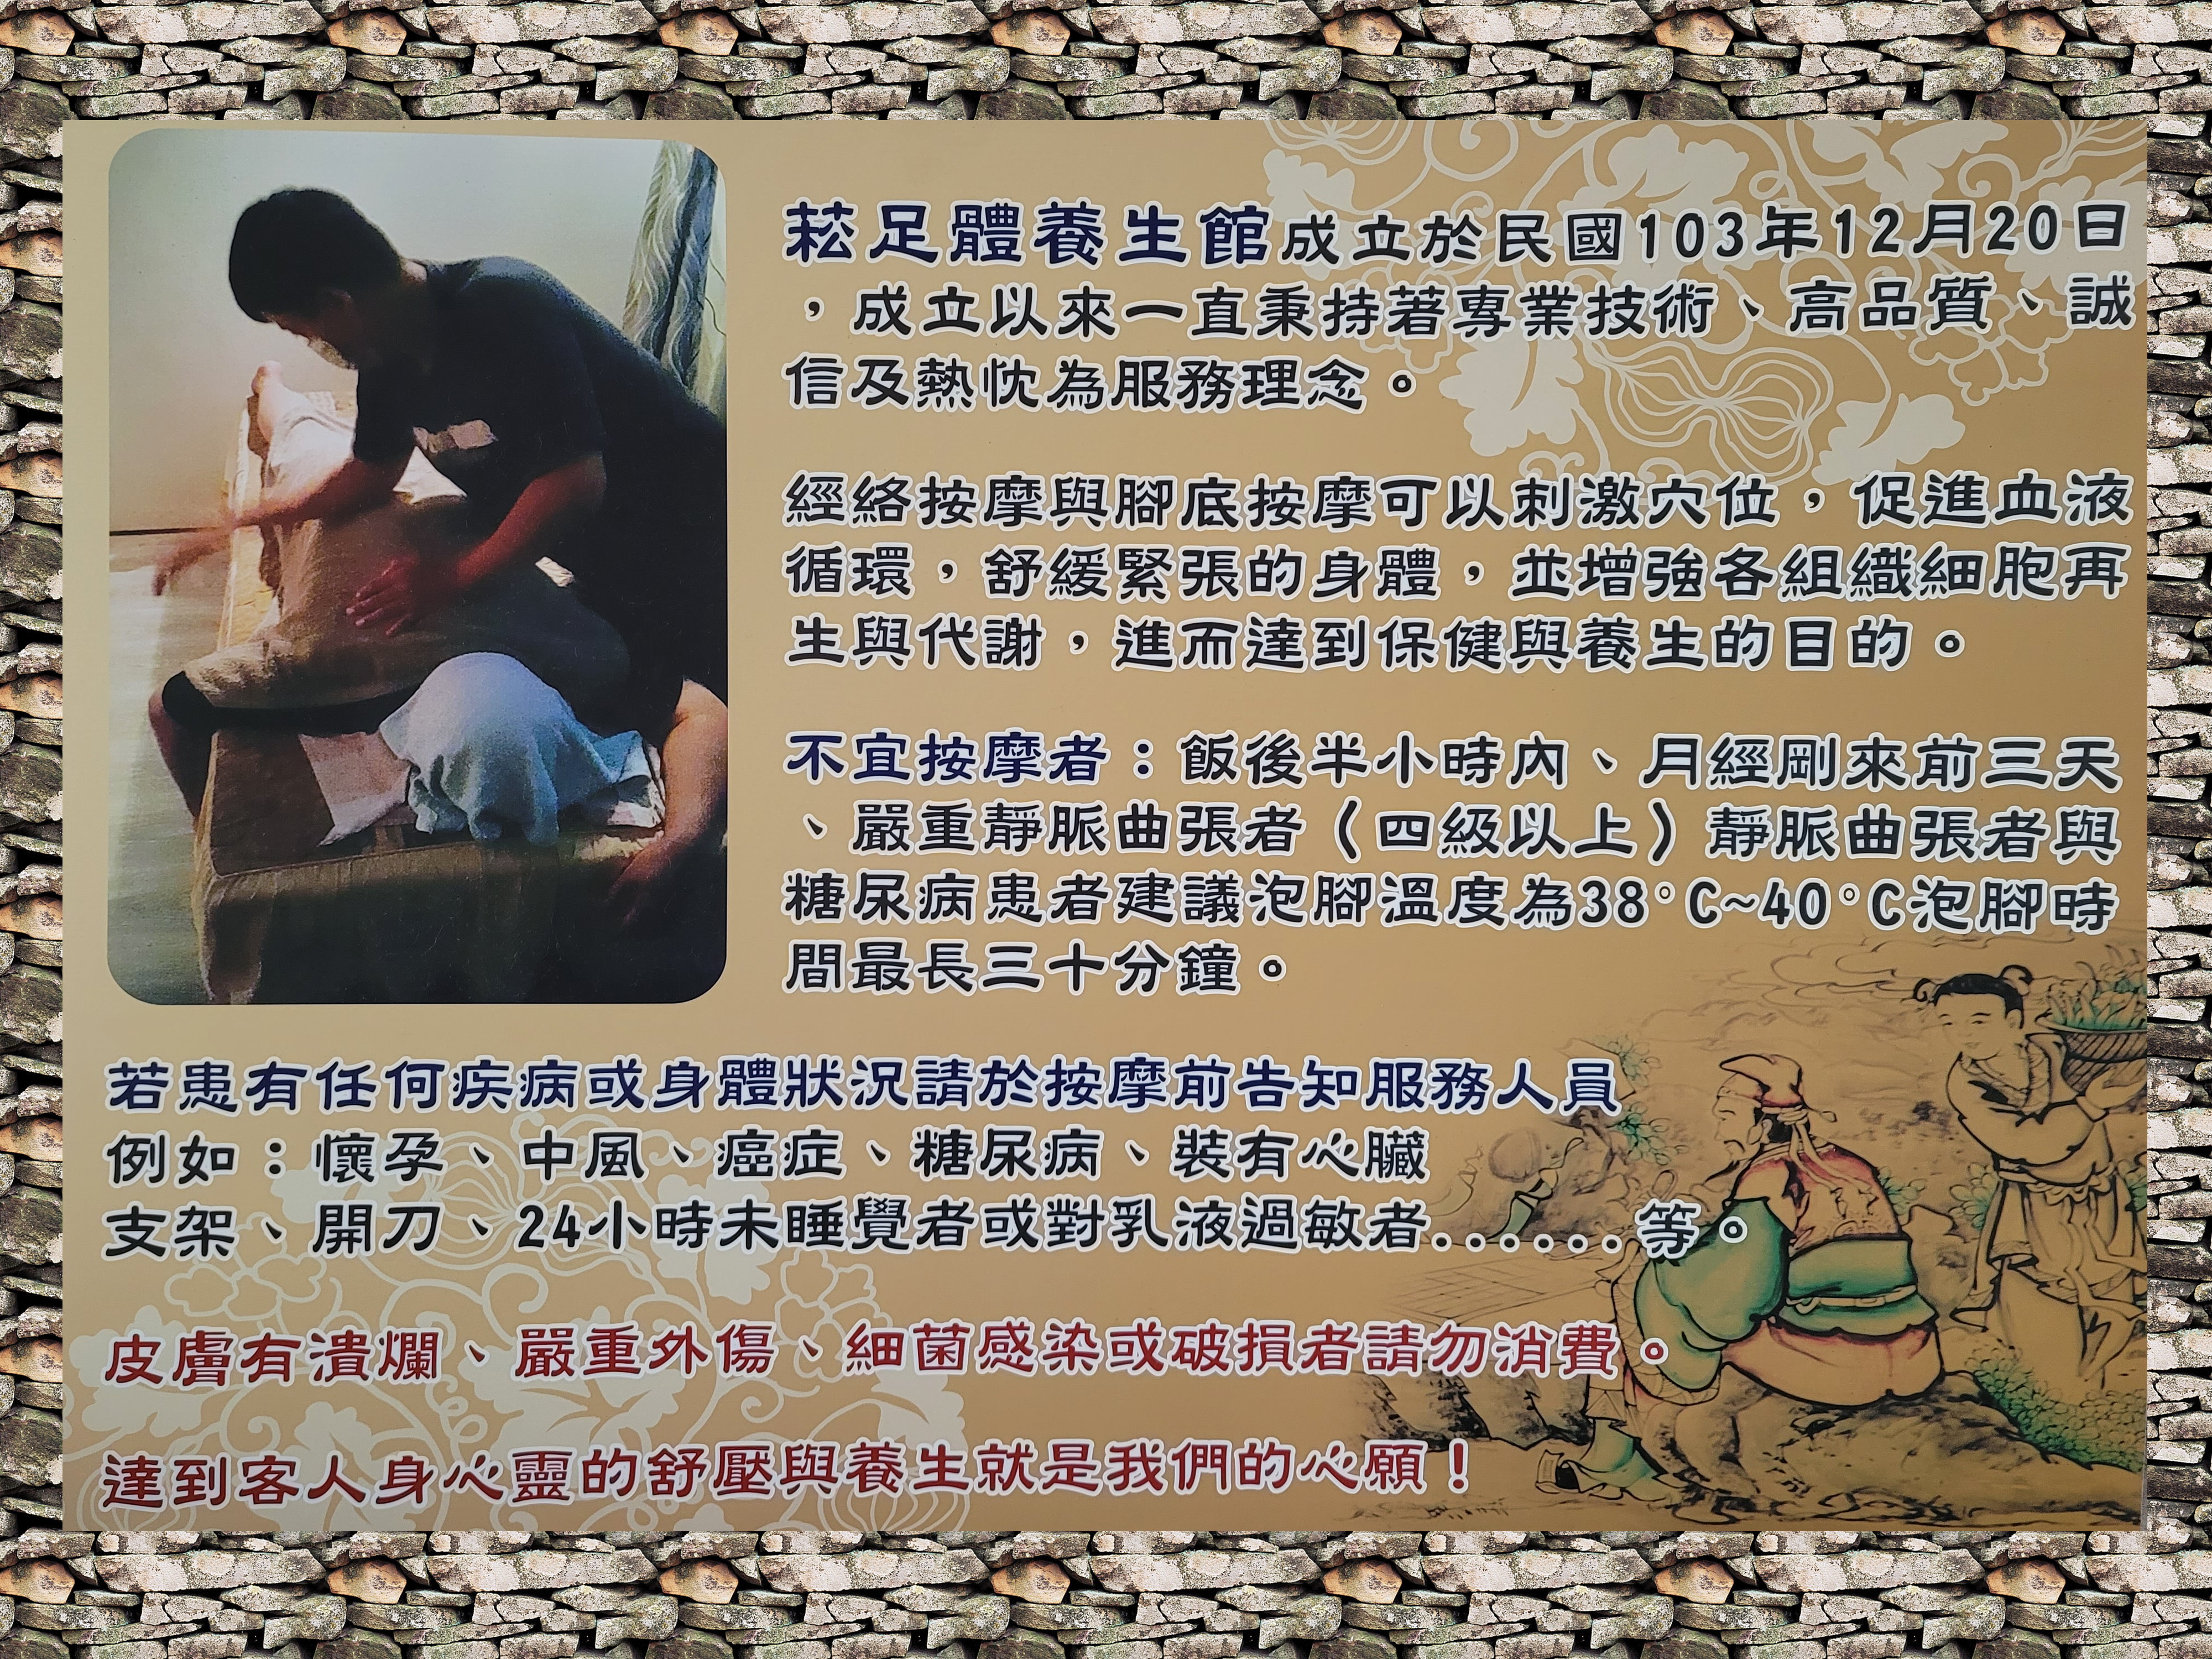 菘足體養生館成立於民國103年12月20日
，成立以來一直秉持著專業技術、高品質、誠
信及熱忱為服務理念。
經絡按摩與腳底按摩可以刺激穴位，促進血液
循環，舒緩緊張的身體，並增強各組織細胞再
生與代謝，進而達到保健與養生的目的。
不宜按摩者：飯後半小時內、月經剛來前三天
、嚴重靜脈曲張者（四級以上）靜脈曲張者與
糖尿病患者建議泡腳溫度為38°C~40°C泡腳時
間最長三十分鐘。
若患有任何疾病或身體狀況請於按摩前告知服務人員
例如：懷孕、中風、癌症、糖尿病、裝有心臟
支架、開刀、24小時未睡覺者或對乳液過敏者......等。
皮膚有潰爛、嚴重外傷、細菌感染或破損者請勿消費。
達到客人身心靈的舒壓與養生就是我們的心願！